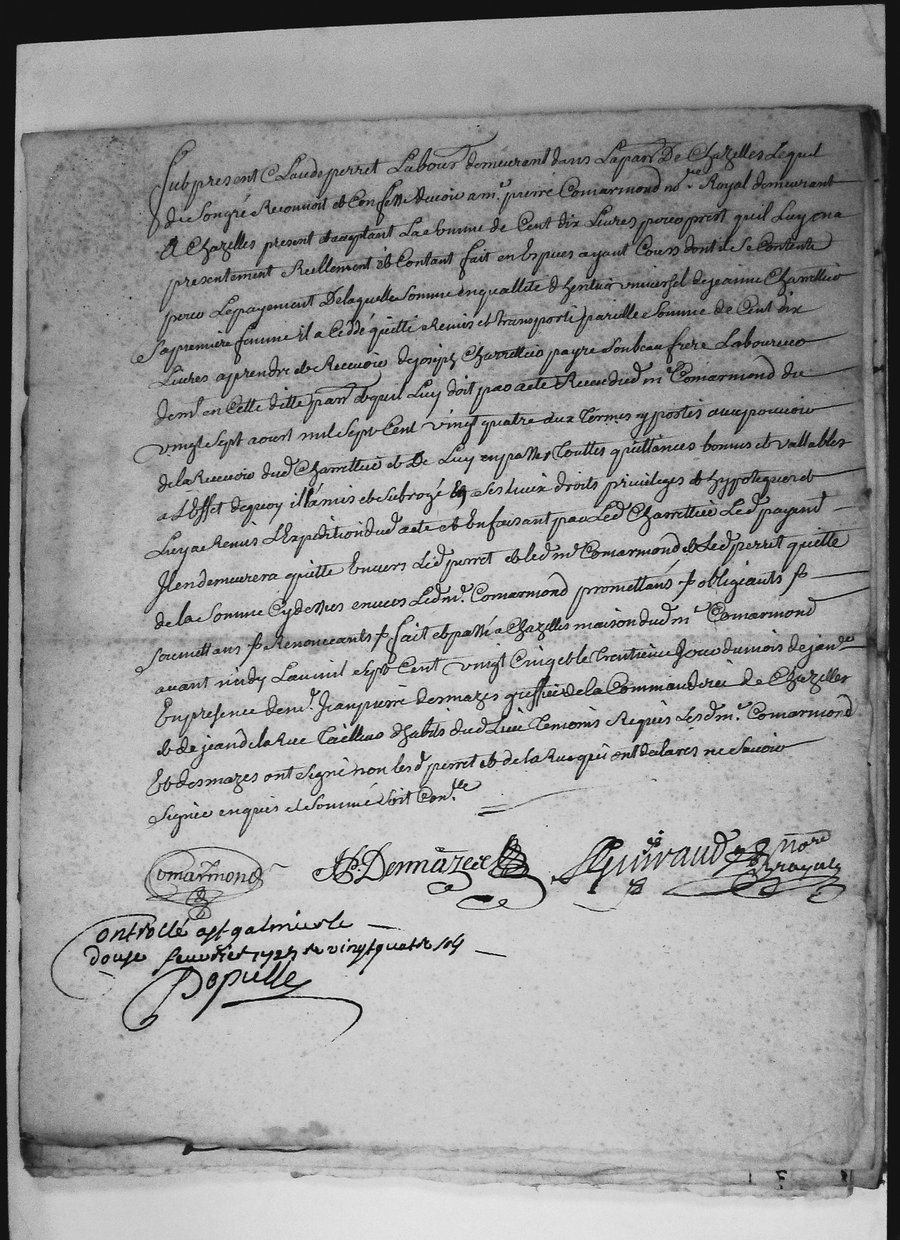 Fut present Claude perret Labour demeurant dans La parr De Chazelles Lequel
de son gré Reconnoit et Confesse devoir a mr pierre Comarmond nre Royal demeurant
A Chazelles present et acceptant La somme de Cent dix Livres pour prest quil Luy en a
presentement Reellement et Contant fait en Especes ayant Cours dont il se Contente
pour Lepayement De laquelle somme en quallité d'heritier universel de jeanne Charretier
Sa premiere femme il a Ceddé quitté Remis et transporté pareille somme de Cent dix
Livres a prendre et Recevoir de joseph Charretier payre son beau frere Laboureur
demt en Cette ditte parr et quil Luy doit par acte Receu dud mr Comarmond du
vingt sept aoust mil sept Cent vingt quatre aux Termes y portés avec pouvoir
de la Recevoir dud Charretier et De Luy en passer Touttes quittances bonnes et vallables
a L'Effet de quoy il La mis et subrogé En ses Lieux droits privileges et hypoteques et
Luy a Remis L'Expedition dud acte et En faisant par Led Charretier Led payemt
Il en demeurera quitte Envers Led perret et led mr Comarmond et Led perret quitte
de la Somme Cy dessus envers Led mr Comarmond promettans p obligeants p
soumettans p Renonceants p fait et passé a Chazelles maison dud mr Comarmond
avant midy Lan mil Sept Cent vingt Cinq et le trentieme Jour du mois de janer
En presence de mr Jean pierre desmazes greffier de la Commanderie de Chazelles
et de jean de la Rue Tailleur d'habits dud Lieu Temoins Requis Lesd mr Comarmond
Et desmazes ont signé non les d perret et de la Rue qui ont declarés ne Savoir
Signer enquis et Sommé Soit Conlle
Comarmond
Guiraud nore royal
Controllé a St galmier le
douze feuvrier 1725 Re vingt quatre sols
Depuelle